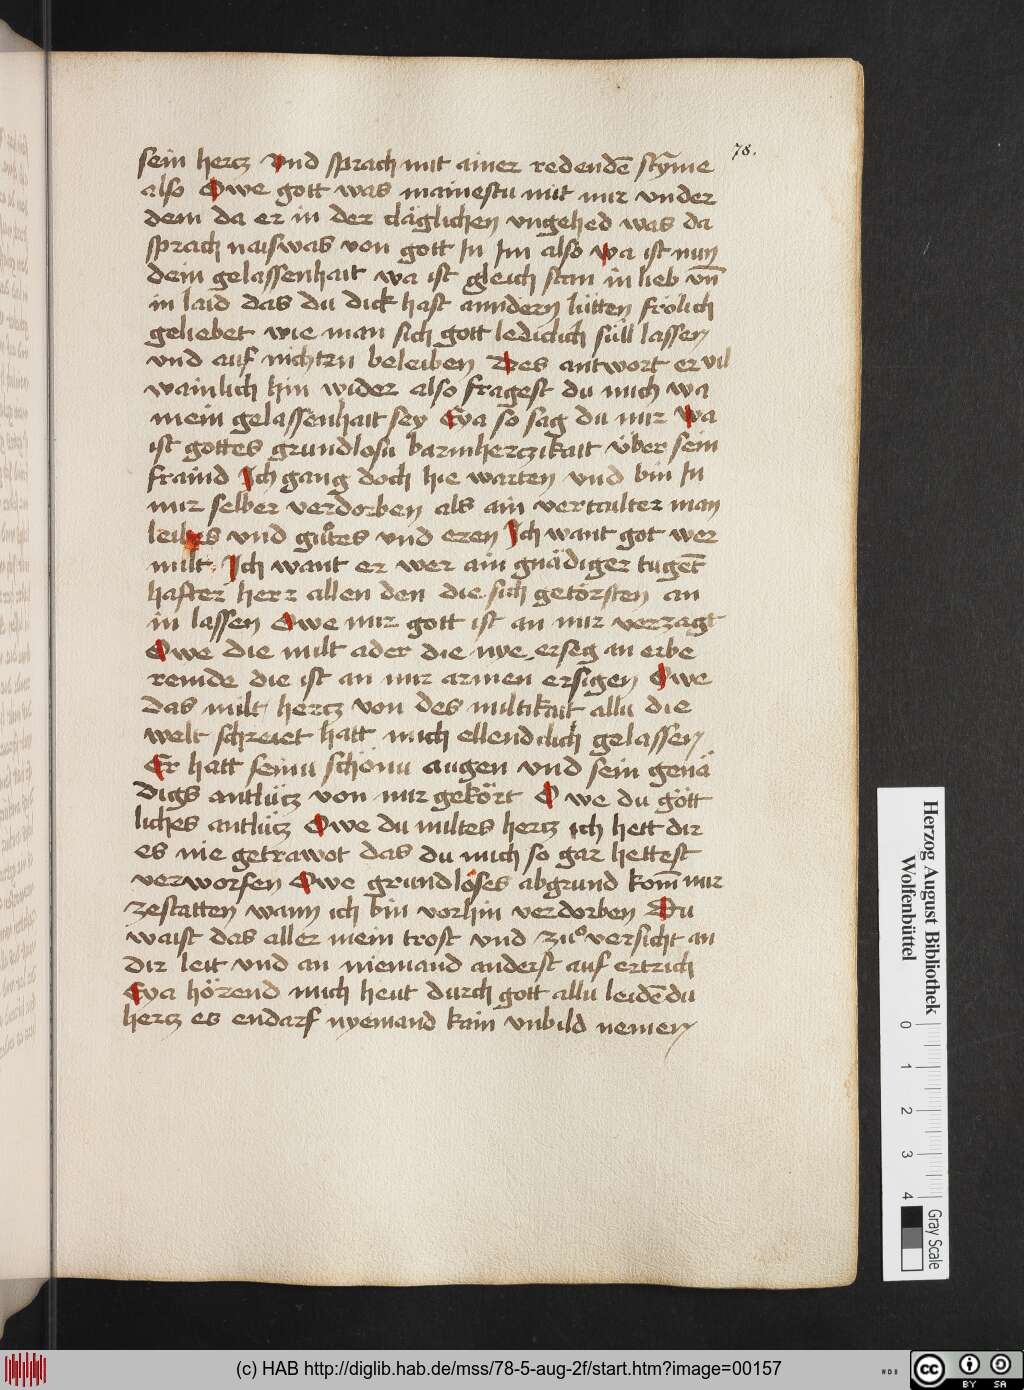 78.
sein hercz vnd sprach mit ainer redendē stÿme
also Owe gott was mainestu mit mir vnder
dem da er in der cläglichen vngehed was da
sprach naiswas von gott In Im also wa ist nun
dein gelassenhait wa ist gleich stan in lieb vn̄
in laid das du dick hast anndern lütten frölich
geliebet wie man sich gott ledicklich süll lassen
vnd auf nichtzu beleiben Des antwort er vil
wainlich hin wider also fragest du mich wa
mein gelassenhait sey Eya so sag du mir wa
ist gottes grundlosu barmherczikait über sein
fraind Ich gang doch hie warten vnd bin In
mir selber verdorben als ain vertailter man
leibes vnd gůtes vnd eren Ich want got wer
milt Ich want er wer ain gnädiger tugent̄
hafter herr allen den die sich getörsten an
in lassen Owe mir gott ist an mir verzagt
Owe die milt ader die nye erseg an erbe
remde die ist an mir armen ersigen Owe
das milt hercz von des miltikait allu die
welt schreiet hatt mich ellendclich gelassen
Er hatt seinu schönu augen vnd sein genä
digs antlücz von mir gekört Owe du gött
liches antlücz Owe du miltes hercz ich hett dir
es nie getrawot das du mich so gar hettest
verworfen Owe grundloses abgrund kom̄ mir
zestatten wann ich bin vorhin verdorben Du
waist das aller mein trost vnd zůversicht an
dir leit vnd an niemand anderst auf ertrich
Eya hörend mich heut durch gott allu leidēdu
hercz es endarf nyemand kain vnbild nemen
Herzog August Bibliothek
Wolfenbüttel
0 1 2 3 4
Gray Scale
(c) HAB http://diglib.hab.de/mss/78-5-aug-2f/start.htm?image=00157
cc BY SA